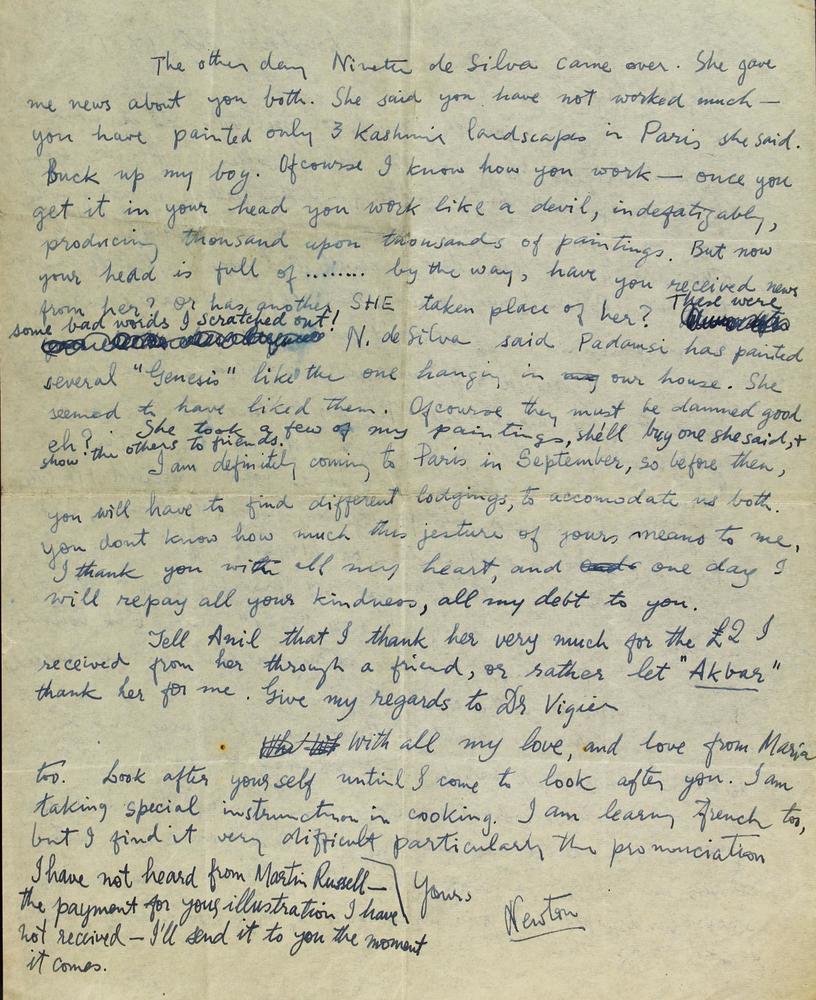 The other day Ninette de Silva came over. She gave
me news about you both. She said you have not worked much —
you have painted only 3 Kashmir landscapes in Paris she said.
Buck up my boy. Ofcourse I know how you work — once you
get it in your head you work like a devil, indefatigably,
producing thousand upon thousands of paintings. But now
your head is full of ........ by the way, have you received news
from her? Or has another SHE taken place of her? These were
some bad words I scratched out!
N. de Silva said Padamsi has painted
several "Genesis" like the one hanging in our house. She
seemed to have liked them. Ofcourse they must be damned good
eh? She took a few of my paintings, she'll buy one she said, +
show the others to friends.
I am definitely coming to Paris in September, so before then,
you will have to find different lodgings, to accomodate us both.
You dont know how much this jesture of yours means to me,
I thank you with all my heart, and one day I
will repay all your kindness, all my debt to you.
Tell Anil that I thank her very much for the £2 I
received from her through a friend, or rather let "Akbar"
thank her for me. Give my regards to Dr Vigier
With all my love, and love from Maria
too. Look after yourself until I come to look after you. I am
taking special instrunction in cooking. I am learny French too,
but I find it very difficult particularly the pronounciation
I have not heard from Martin Russell —
the payment for your illustration I have
not received — I'll send it to you the moment
it comes.
Yours
Newton